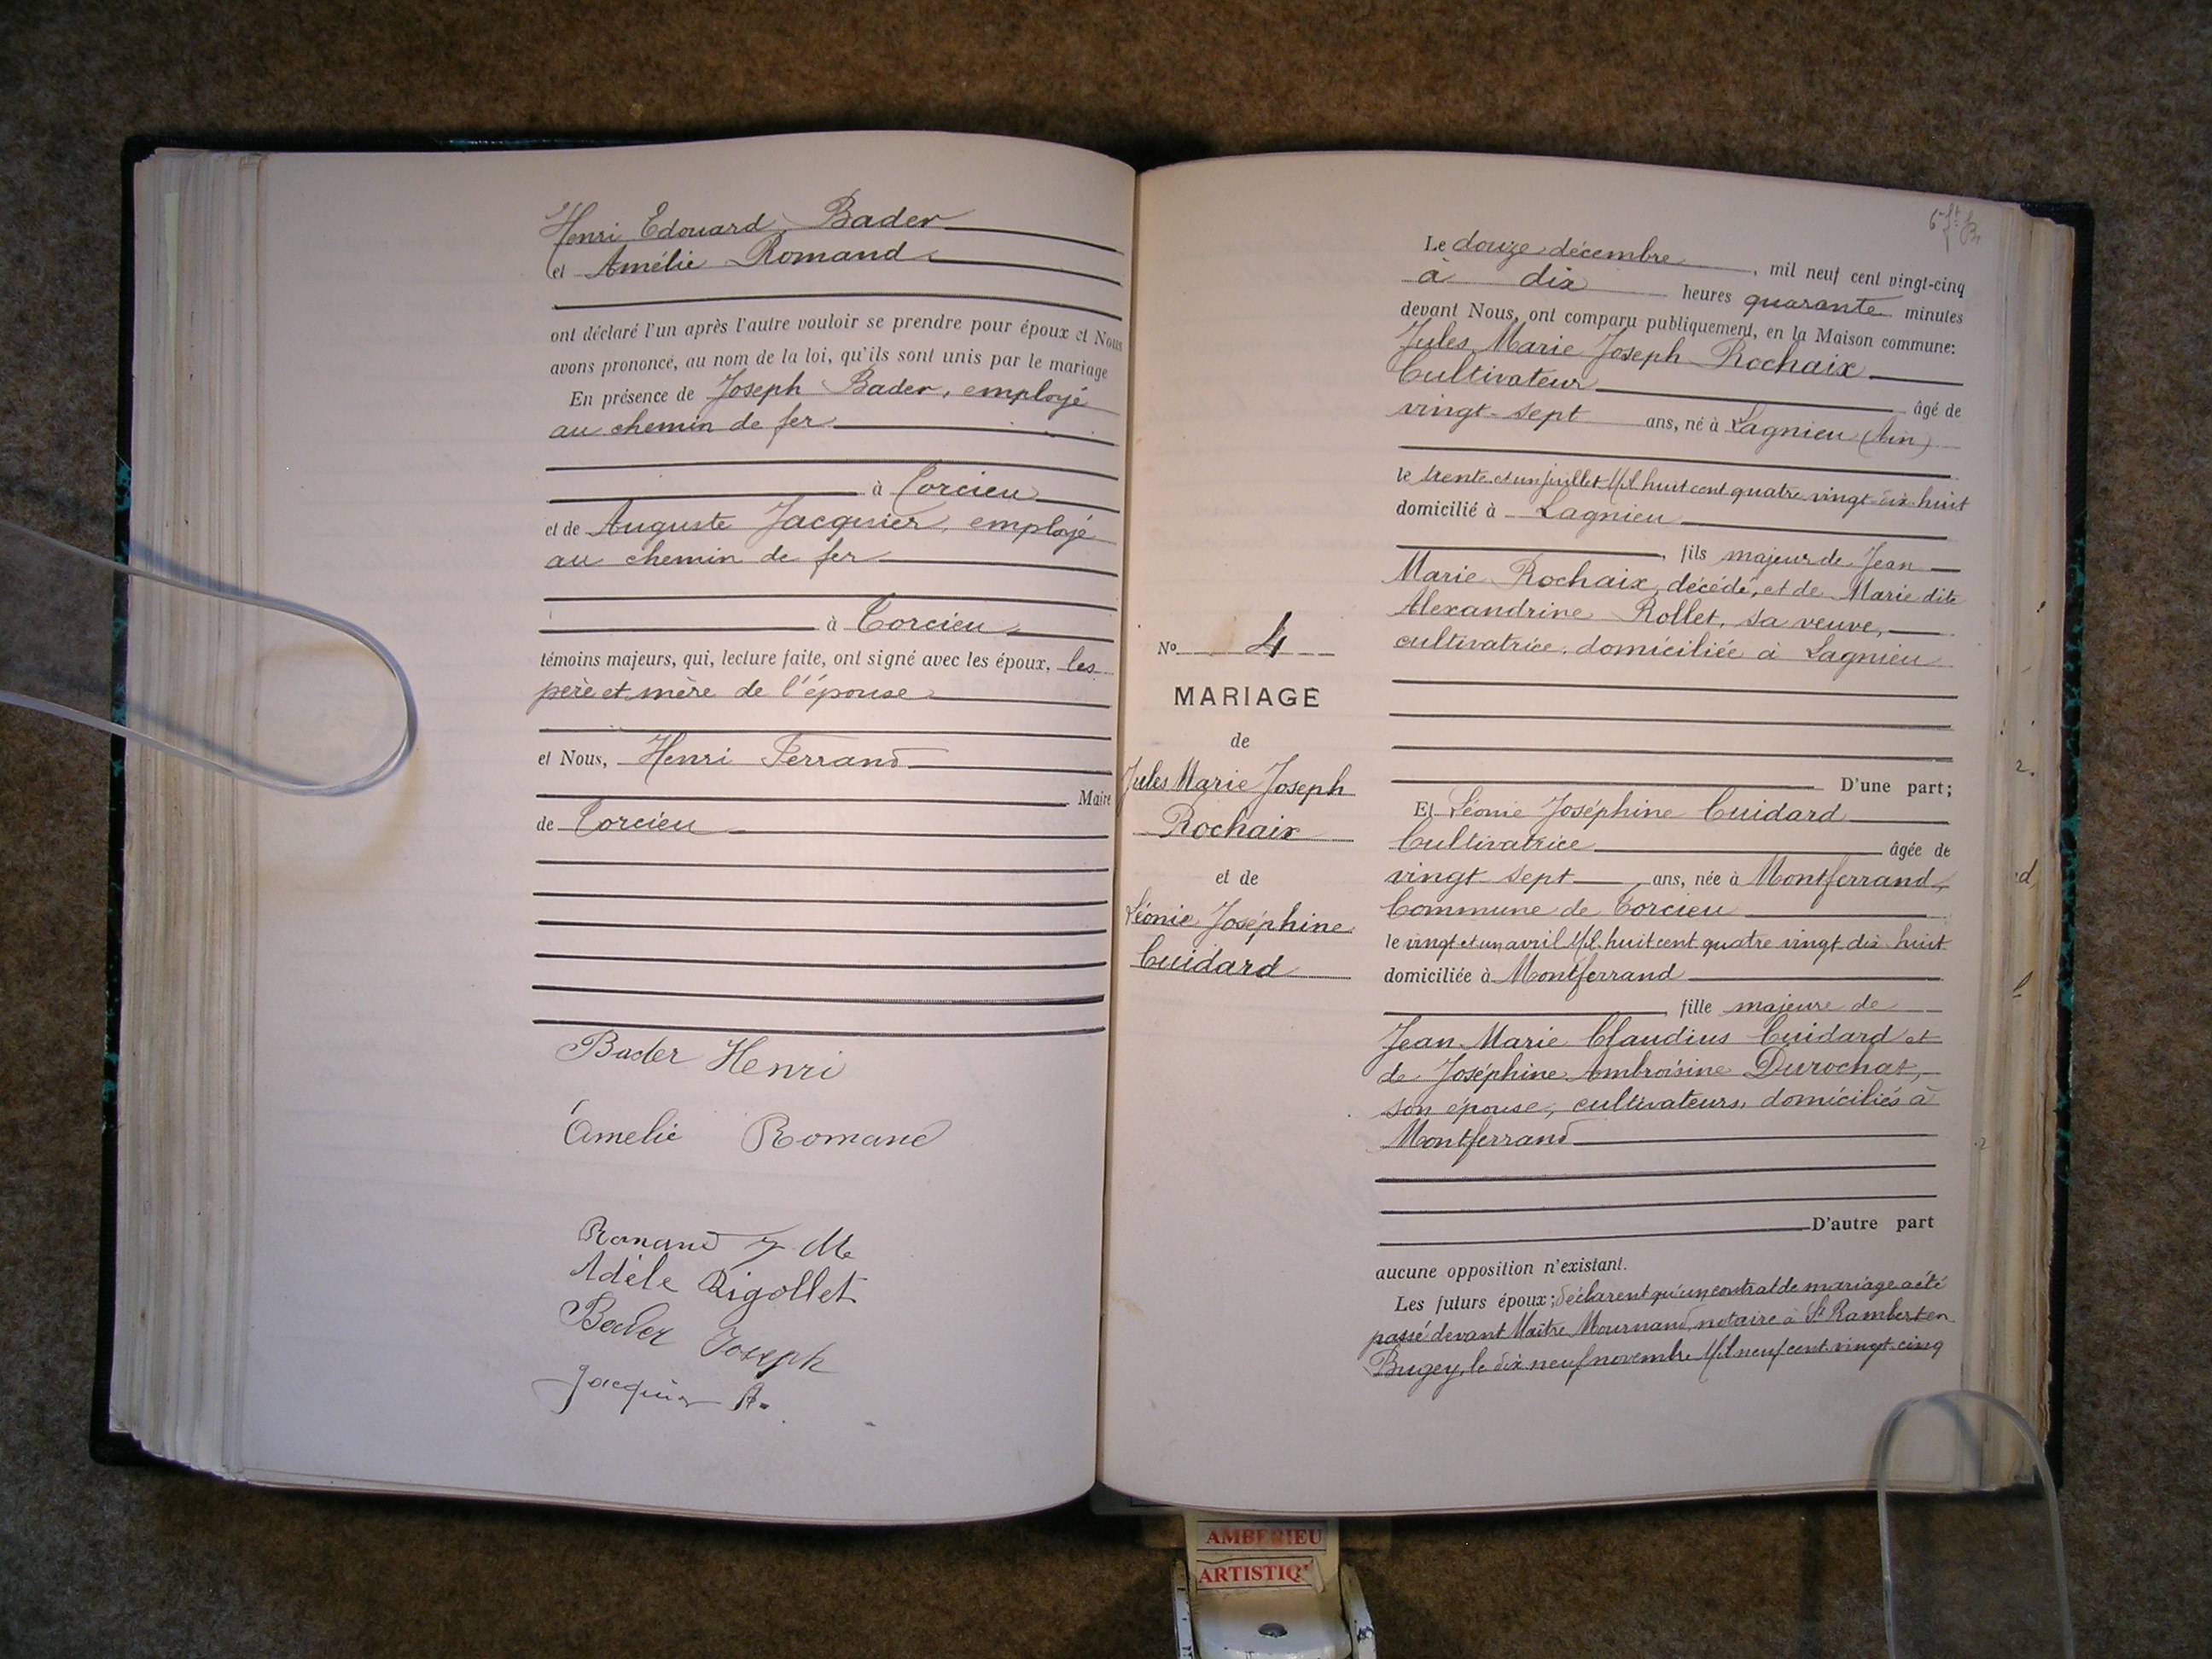 Henri Edouard Bader
et Amélie Romand
ont déclaré l'un après l'autre vouloir se prendre pour époux et Nous
avons prononcé, au nom de la loi, qu'ils sont unis par le mariage
En présence de Joseph Bader, employé
au chemin de fer
à Torcieu
et de Auguste Jacquier, employé
au chemin de fer
à Torcieu
témoins majeurs, qui, lecture faite, ont signé avec les époux, les
père et mère de l'épouse
et Nous, Henri Ferrand
Maire
de Torcieu
Bader Henri
Amelie Romand
Romand J M
Adèle Rigollet
Bader Joseph
Jacquier A.
Le douze décembre, mil neuf cent vingt-cinq
à dix heures quarante minutes
devant Nous, ont comparu publiquement, en la Maison commune:
Jules Marie Joseph Rochaix
Cultivateur âgé de
vingt-sept ans, né à Lagnieu (Ain)
le trente et un juillet Mil huit cent quatre vingt dix huit
domicilié à Lagnieu
, fils majeur de Jean
Marie Rochaix, décédé, et de Marie dite
Alexandrine Rollet, sa veuve,
cultivatrice, domiciliée à Lagnieu
No 4
MARIAGE
de
Jules Marie Joseph
Rochaix
et de
Léonie Joséphine
Cuidard
D'une part;
Et Léonie Joséphine Cuidard
Cultivatrice âgée de
vingt-sept ans, née à Montferrand,
Commune de Torcieu
le vingt et un avril Mil huit cent quatre vingt dix huit
domiciliée à Montferrand
, fille majeure de
Jean Marie Claudius Cuidard et
de Joséphine Ambroisine Durochat,
son épouse, cultivateurs, domiciliés à
Montferrand
D'autre part
aucune opposition n'existant.
Les futurs époux; déclarent qu'un contrat de mariage a été
passé devant Maître Mournand, notaire à St Rambert en
Bugey, le dix neuf novembre Mil neuf cent vingt-cinq
AMBERIEU
ARTISTIQ